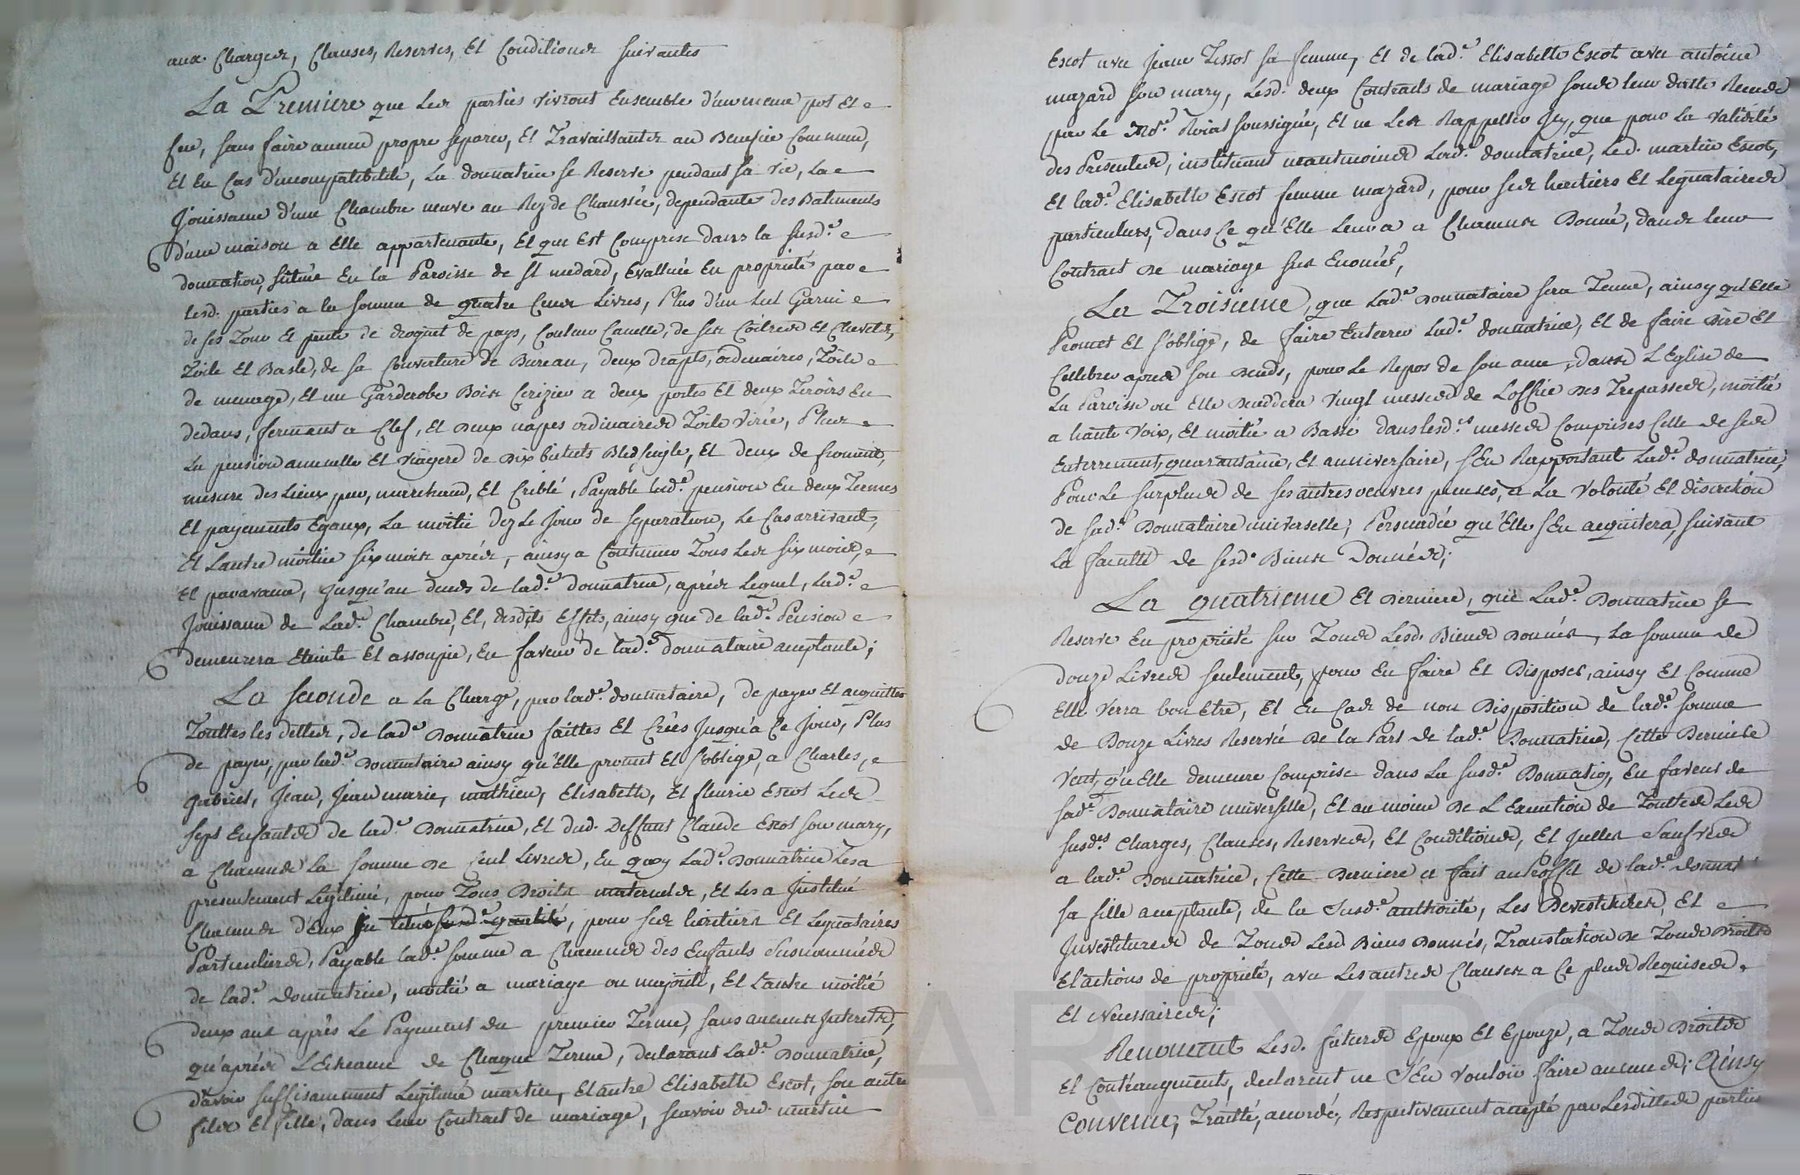 aux Charges, Clauses, Reserves, Et Conditions suivantes
La Premiere que Les parties vivront Ensemble d'un meme pot Et
feu, sans faire aucun propre separer, Et Travaillants au Benefice Commun,
Et En Cas d'incompatibilité, La donnatrice se Reserve pendant sa vie, La
Jouissance d'une Chambre neuve au Rez de Chaussée, dependante des Batiments
d'une maison a Elle appartenante, Et qui Est Comprise dans la susd.e
donnation, situee En la Paroisse de St medard, Evalluée En proprieté par
Lesd. parties a la somme de quatre Cent Livres, Plus d'un Lit Garni
de ses Tour Et pente de droguet de pays, Couleur Canelle, de ses Coitres Et Chevets,
Toile Et Basle, de sa Couverture de Bureau, deux drapts, ordinaires, Toile
de menage, Et un Garderobe Bois Cerizier a deux portes Et deux Tiroirs En
dedans, fermant a Clef, Et deux napes ordinaires Toile Virée, Plus
La pension annuelle Et viagere de dix bichets Bled seigle, Et deux de froment,
mesure des Lieux pur, marchand, Et Criblé, Payable lad.e pension En deux Termes
Et payements Egaux, La moitié dez le Jour de separation, Le Cas arrivant,
Et Lautre moitié six mois aprés, ainsy a Continuer Tous Les six mois,
Et par avance, Jusqu'au deces de lad.e donnatrice, aprés Lequel, Lad.e
Jouissance de Lad.e Chambre, Et, desdits Effets, ainsy que de lad.e Pension
demeurera Eteinte Et assoupie, En faveur de lad.e donnataire acceptante;
La seconde a La Charge, par lad.e donnataire, de payer Et acquitter
Touttes les dettes, de lad.e Donnatrice faittes Et Crées Jusqu'a Ce Jour, Plus
de payer, par lad.e Donnataire ainsy qu'Elle promet Et S'oblige, a Charles,
Gabriel, Jean, Jean marie, mathieu, Elisabeth, Et fleurie Escot Les
sept Enfants de lad.e Donnatrice, Et dud. Deffunt Claude Escot son mary,
a Chacuns La somme de Cent Livres, En quoy Lad.e Donnatrice Les a
presentement Legitimé, pour Tous Droits maternels, Et Les a Institué
Chacuns d'Eux, pour ses heritiers Et Legataires
Particuliers, Payable lad.e somme a Chacuns des Enfants Susnommés
de lad.e Donnatrice, moitié a mariage ou majorité, Et Lautre moitié
deux ans aprés Le Payement du premier Terme, sans aucuns Interets,
qu'aprés L'Echeance de Chaque Terme, declarant Lad.e Donnatrice,
d'avoir suffisamment Legitimé martin, Et autre Elisabeth Escot, son autre
fils Et fille, dans Leur Contrat de mariage, scavoir dud. martin
Escot avec Jeane Tissot sa femme, Et de lad.e Elisabeth Escot avec antoine
mazard son mary, Lesd. deux Contrats de mariage sous Leur datte Recus
par Le Nd.e Roial soussigné, Et ne Les Rappeller Icy, que pour La Validité
des Presentes, instituant neantmoins Lad.e donnatrice, Led. martin Escot,
Et lad.e Elisabeth Escot femme mazard, pour ses heritiers Et Legataires
particuliers, dans Ce qu'Elle Leur a a Chacuns Donné, dans leur
Contrat de mariage sus Enoncés,
La Troisieme que Lad.e Donnataire sera Tenue, ainsy qu'Elle
Promet Et s'oblige, de faire Enterrer Lad.e donnatrice, Et de faire dire Et
Cellebrer apres son deceds, pour Le Repos de son ame, dans L'Eglise de
La Paroisse ou Elle deceddera Vingt messes de Loffice des Trepassés, moitié
a haute Voix, Et moitié a Basse dans lesd.es messes Comprises Celle de ses
Enterrement, quarantaine, Et anniversaire, s'En Rapportant Lad.e donnatrice,
Pour Le surplus de ses autres oeuvres pieuses, a La Volonté Et discretion
de sad.e Donnataire universelle, Persuadée qu'Elle s'En acquitera, suivant
La faculté de sesd. Biens Donnés;
La quatrieme Et Derniere, que Lad.e Donnatrice se
Reserve En proprieté sur Tous Lesd. Biens Donnés, La somme de
douze Livres seulement, pour En faire Et Disposer, ainsy Et Comme
Elle Verra bon Etre, Et En Cas de non Disposition de lad.e somme
de Douze Livres Reservée De La Part de lad.e Donnatrice, Cette Derniere
Veut qu'Elle demeure Comprise dans La susd.e Donnation, En faveur de
sad.e Donnataire universelle, Et au moien de L'Execution de Touttes Les
susd.es Charges, Clauses, Reserves, Et Conditions, Et Icelles Sauves
a lad.e Donnatrice, Cette Derniere a fait au Proffit de lad.e donnat.e
sa fille acceptante, de la Susd.e authorité, Les Devestitures, Et
Investitures de Tous Lesd Biens Donnés, Translation de Tous Droits
Et actions de proprieté, avec Les autres Clauses a Ce plus Requises,
Et Necessaires;
Renoncent Lesd. futurs Epoux Et Epouze, a Tous Droits
Et Contraugments, declarent ne s'En Vouloir faire aucuns; Ainsy
Convenu, Traitté, accordé, Respectivement accepté par Lesdittes parties